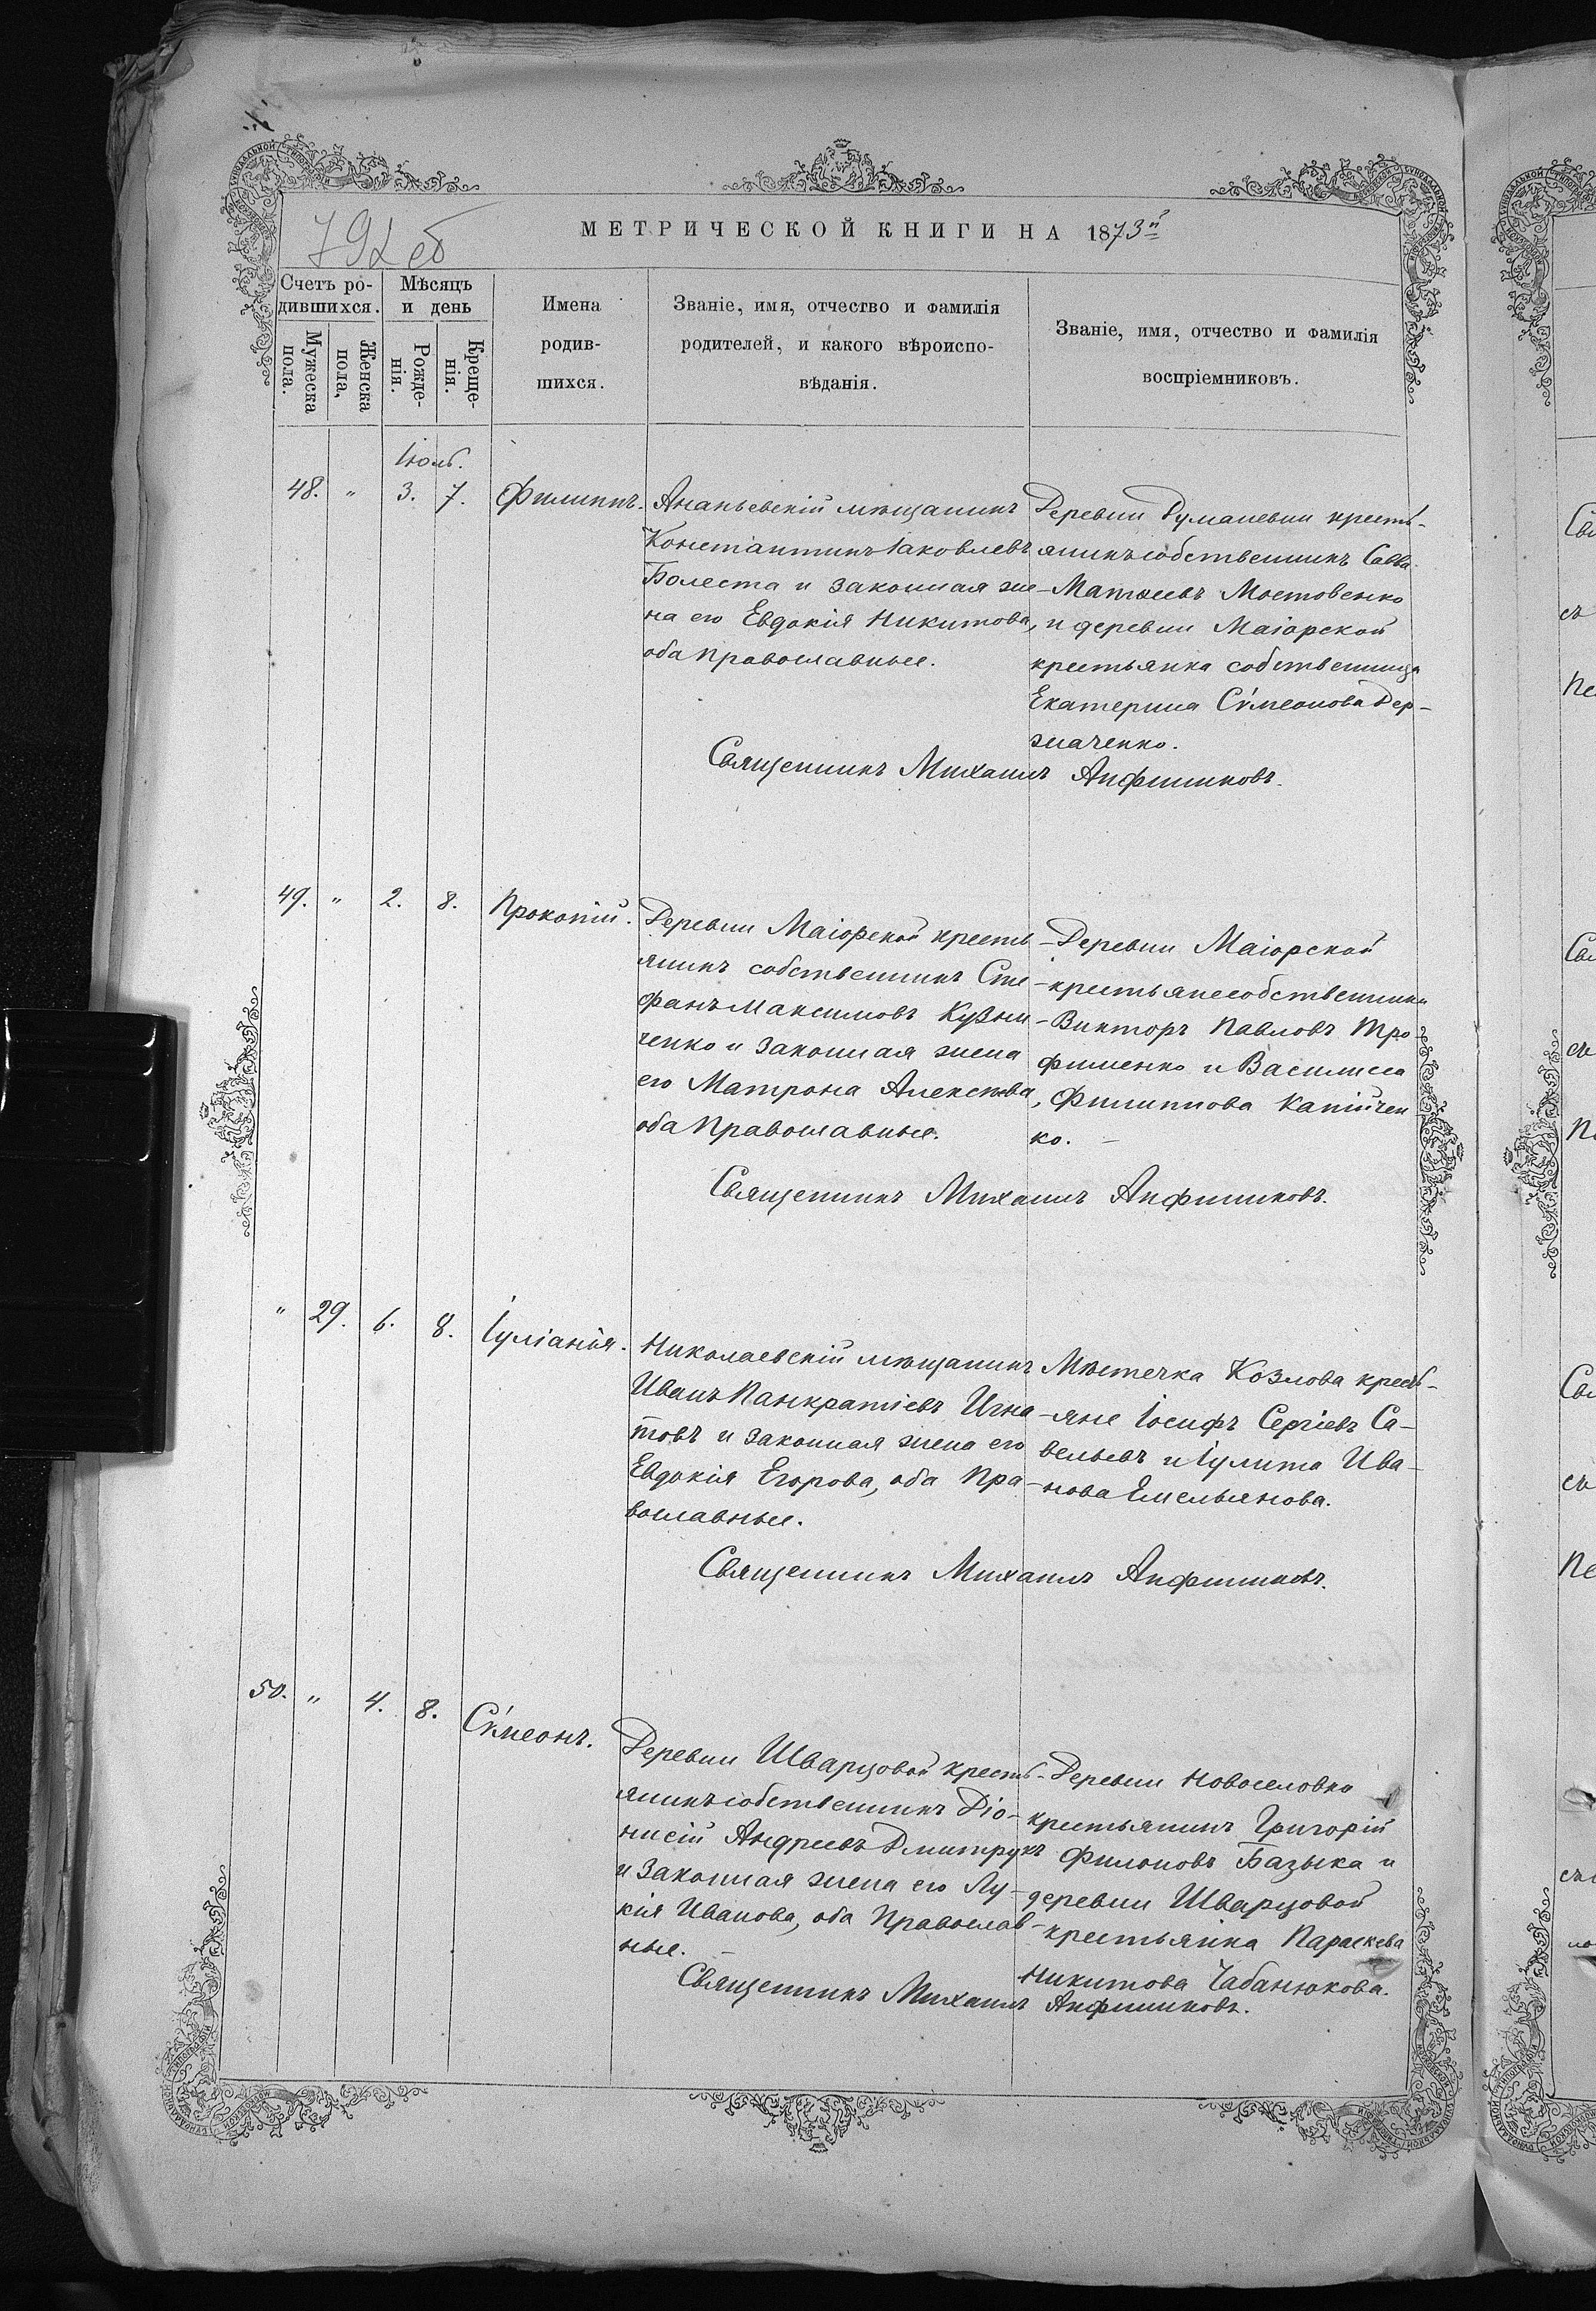 МЕТРИЧЕСКОЙ КНИГИ НА 1873й
Счетъ ро-
дившихся.
Мужеска
пола.
Женска
пола,
Мѣсяцъ
и день
Рожде-
нія.
Креще-
нія.
Имена
родив-
шихся.
Званіе, имя, отчество и фамилія
родителей, и какого вѣроиспо-
вѣданія.
Званіе, имя, отчество и фамилія
воспріемниковъ.
Іюль.
48. " 3. 7. Филиппъ.
Ананьевскій мѣщанинъ
Константинъ Іаковлевъ
Болеста и законная же-
на его Евдокія Никитова,
оба православные.
Деревни Гуманевки кресть-
янинъ собственникъ Савва
Матѳеевъ Мостовенко
и деревни Маіорской
крестьянка собственница
Екатерина Сѵмеонова Дер-
жаченко.
Священникъ Михаилъ Анфиниковъ.
49. " 2. 8. Прокопій.
Деревни Маіорской кресть-
янинъ собственникъ Сте-
фанъ Максимовъ Кузьми-
ченко и законная жена
его Матрона Алексѣева,
оба Православные.
Деревни Маіорской
крестьяне собственники
Викторъ Павловъ Тро-
фименко и Василисса
Филиппова Капійчен-
ко. —
Священникъ Михаилъ Анфиниковъ.
" 29. 6. 8. Іуліанія.
Николаевскій мѣщанинъ
Иванъ Панкратіевъ Игна-
товъ и законная жена его
Евдокія Егорова, оба Пра-
вославные.
Мѣстечка Козлова кресть-
яне Іосифъ Сергіевъ Са-
вельевъ и Іулита Ива-
нова Емельянова.
Священникъ Михаилъ Анфиниковъ.
50. " 4. 8. Сѵмеонъ.
Деревни Шварцовой кресть-
янинъ собственникъ Діо-
нисій Андреевъ Дмитрукъ
и законная жена его Лу-
кія Иванова, оба Православ-
ные. —
Деревни Новоселовки
крестьянинъ Григорій
Филоновъ Базыка и
деревни Шварцовой
крестьянка Параскева
Никитова Чабанюкова.
Священникъ Михаилъ Анфиниковъ.